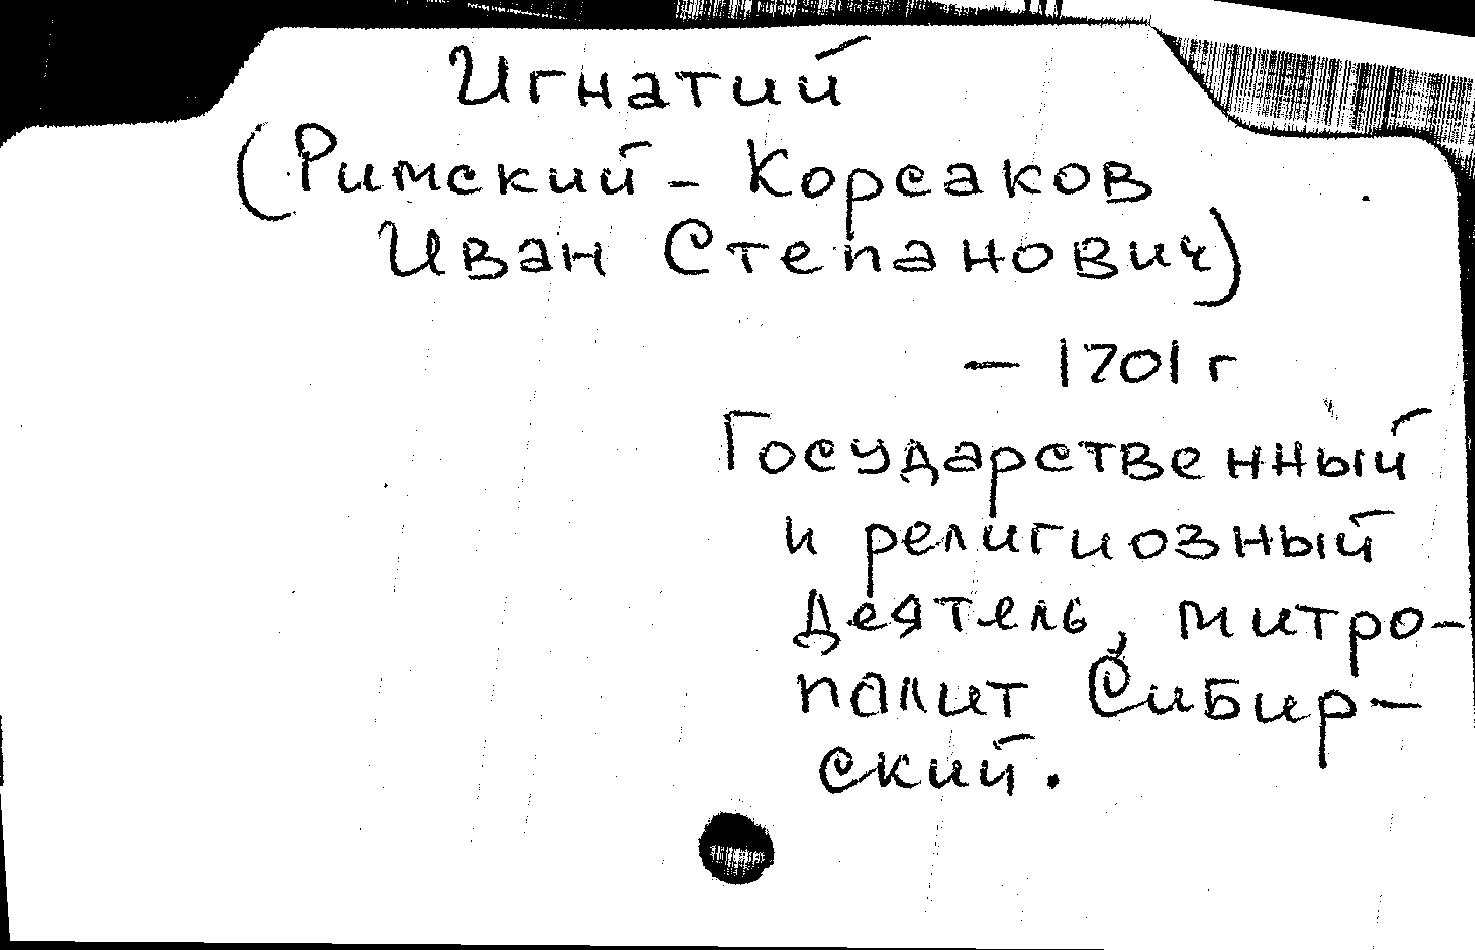 Игнатий
(Римский - Корсаков
Иван Степанович)
— 1701 г
Государственный
и религиозный
деятель, митро-
полит Сибир-
ский.